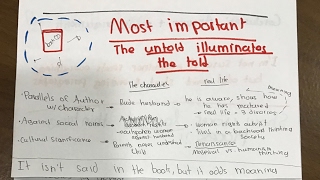 Most important
The untold illuminates
the told
book
The characters
real life
meaning
Parallels of Author
w/ character
Rude husband
he is aware, shows how
he has matured
real life = 3 divorces
Against social norms
outspoken women
against husband
women right activist
lived in a backward thinking
society
Cultural significance
Parents names undivided
Child
Renaissance
Medieval vs. humanistic
thinking
It isn't said in the book, but it adds meaning